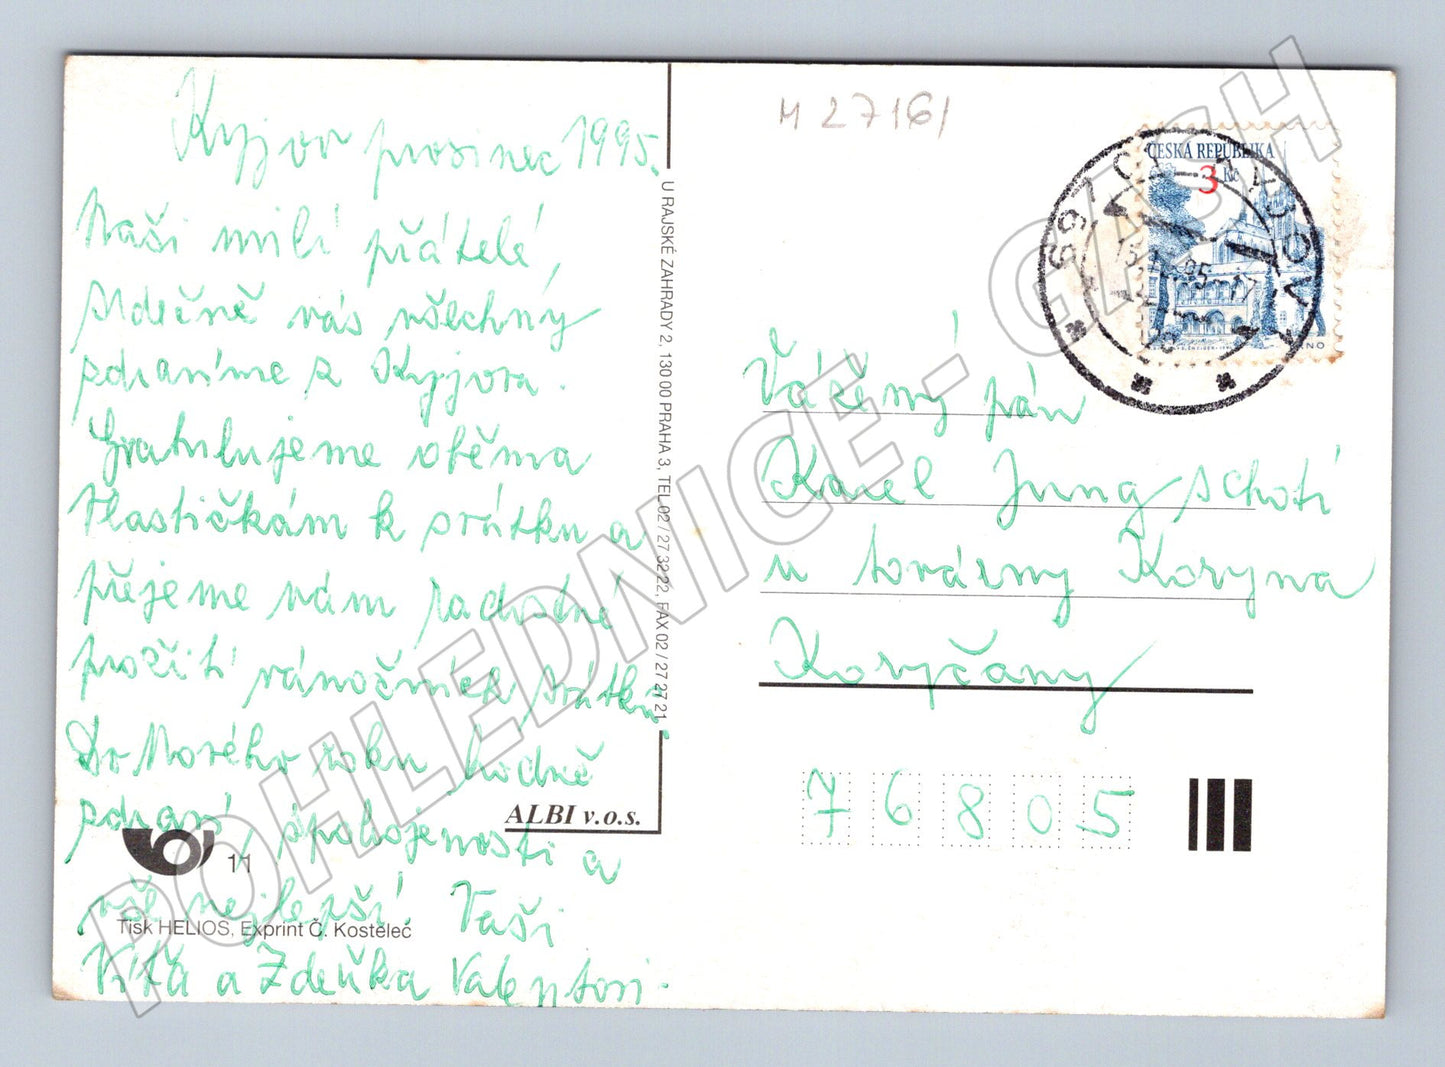 Kyjov prosinec 1995.
Naši milí přátelé,
srdečně vás všechny
zdravíme z Kyjova.
Gratulujeme oběma
Vlastičkám k svátku a
přejeme vám radostné
prožití vánočních svátků.
Do Nového roku hodně
zdraví, spokojenosti a
vše nejlepší! Vaši
Víťa a Zdeňka Valentovi.
ALBI v.o.s.
11
Tisk HELIOS, Exprint Č. Kostelec
U RAJSKÉ ZAHRADY 2, 130 00 PRAHA 3, TEL 02 / 27 3222, FAX 02 / 27 27 21
M 27161
ČESKÁ REPUBLIKA
3 Kč
KYJOV 1
697 01
Vážený pán
Karel Jung schotí
u továrny Koryna
Koryčany
76805
POHLEDNICE - GASH